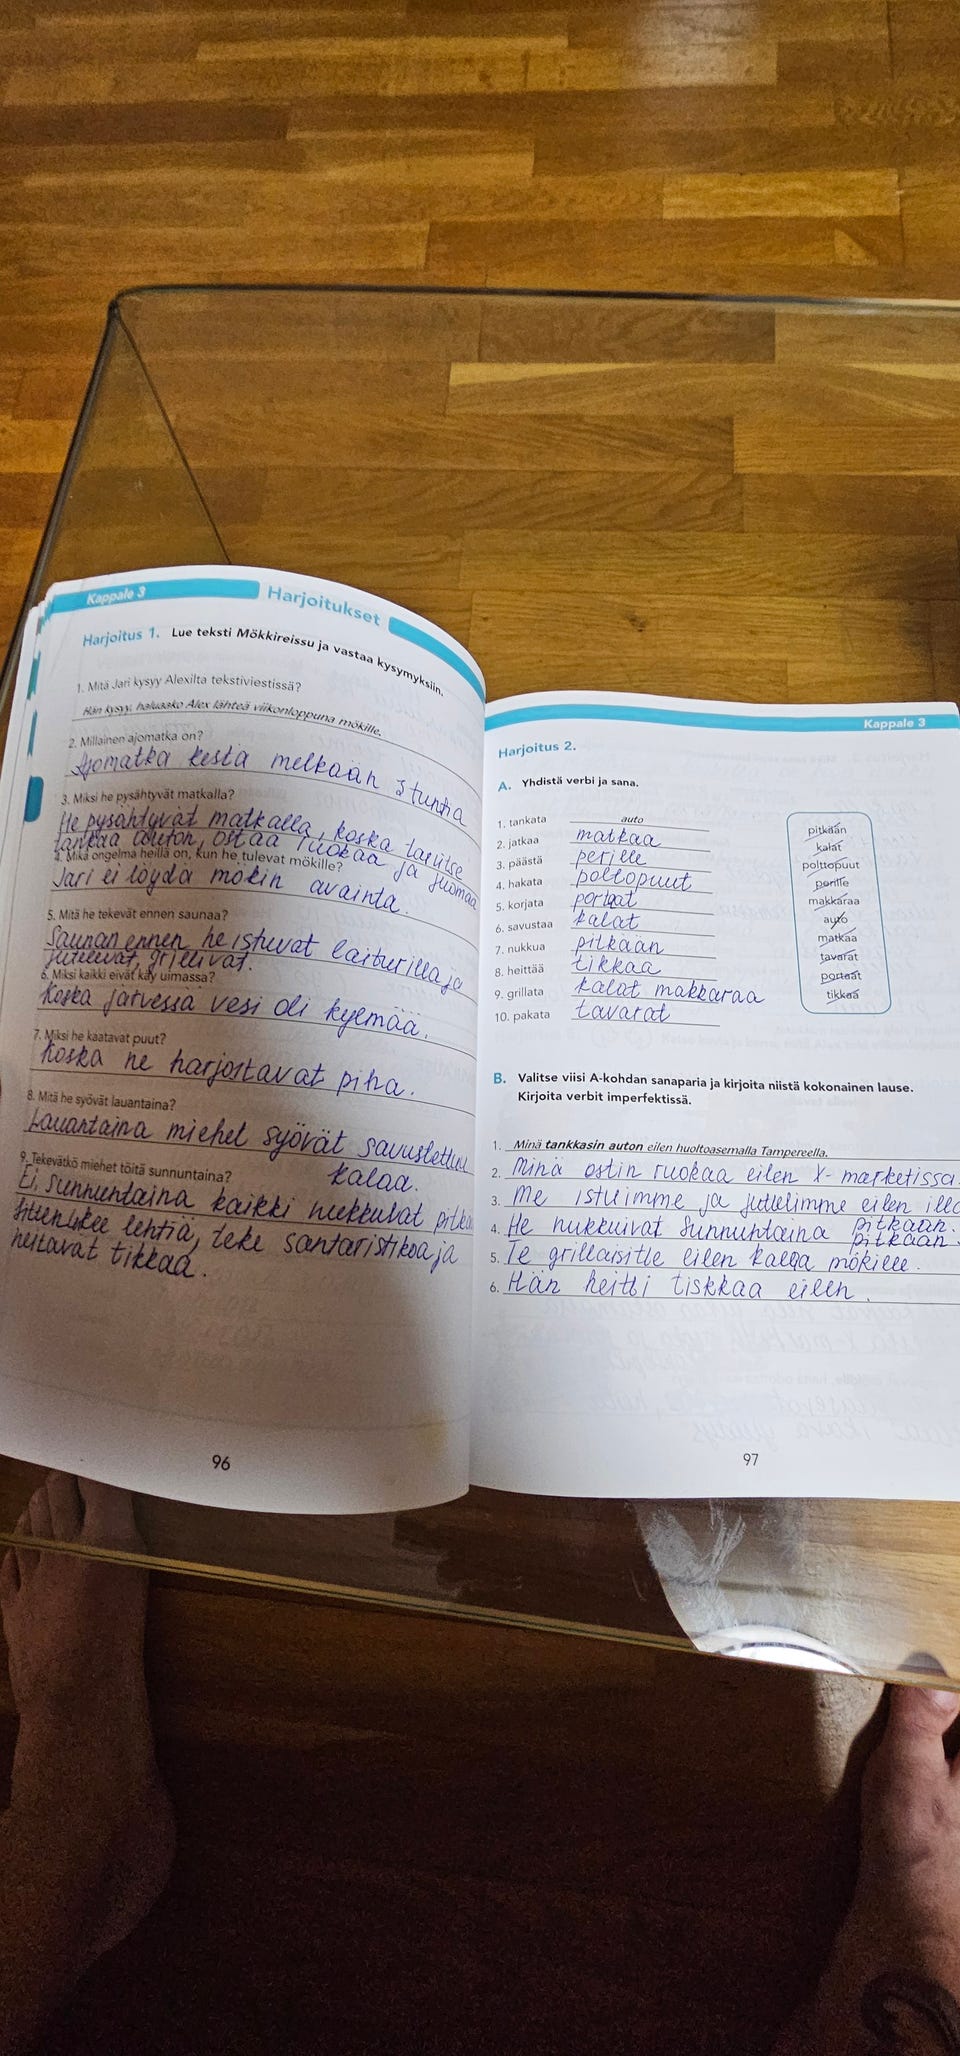 Kappale 3
Harjoitukset
Harjoitus 1. Lue teksti Mökkireissu ja vastaa kysymyksiin.
1. Mitä Jari kysyy Alexilta tekstiviestissä?
Hän kysyy, haluaako Alex lähteä viikonloppuna mökille.
2. Millainen ajomatka on?
Ajomatka kesta melkaan 3 tunna
3. Miksi he pysähtyvät matkalla?
He pysähtyvät matkalla, koska
tankaa auton, ostaa ruokaa ja juomaa
4. Mikä ongelma heillä on, kun he tulevat mökille?
Jari ei löydä mökin avainta.
5. Mitä he tekevät ennen saunaa?
Saunan ennen he istuvat laiturilla ja
juttelevat, grillivat.
6. Miksi kaikki eivät käy uimassa?
Koska jarvessa vesi oli kyemää.
7. Miksi he kaatavat puut?
Koska he harjostavat piha.
8. Mitä he syövät lauantaina?
Lauantaina miehet syövät savustettua
kalaa.
9. Tekevätkö miehet töitä sunnuntaina?
Ei, sunnuntaina kaikki nukkuvat
lukee lehtiä, teke santaristikoa ja
heitavat tikkaa.
96
Kappale 3
Harjoitus 2.
A. Yhdistä verbi ja sana.
1. tankata auto
2. jatkaa matkaa
3. päästä perille
4. hakata poltopuut
5. korjata portaat
6. savustaa kalat
7. nukkua pitkään
8. heittää tikkaa
9. grillata kalat makkaraa
10. pakata tavarat
pitkään
kalat
polttopuut
perille
makkaraa
auto
matkaa
tavarat
portaat
tikkaa
B. Valitse viisi A-kohdan sanaparia ja kirjoita niistä kokonainen lause.
Kirjoita verbit imperfektissä.
1. Minä tankkasin auton eilen huoltoasemalla Tampereella.
2. Minä ostin ruokaa eilen K-marketissa.
3. Me istuimme ja juttelimme eilen
pitkään.
4. He nukkuivat sunnuntaina pitkään
5. Te grillaisitte eilen kalaa mökille.
6. Hän heitti tiskkaa eilen.
97